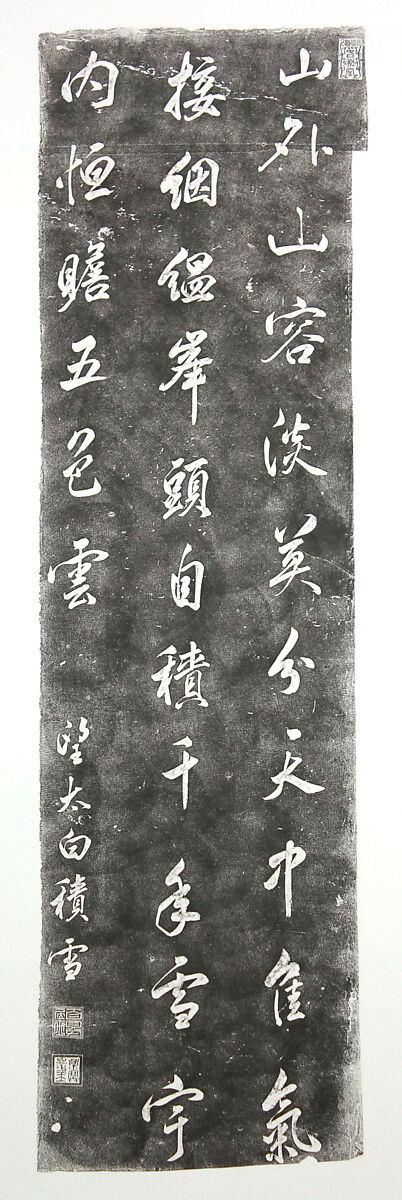 山外山容淡莫分天中佳氣
接絪緼峯頭自積千年雪宇
內恒瞻五色雲
望太白積雪